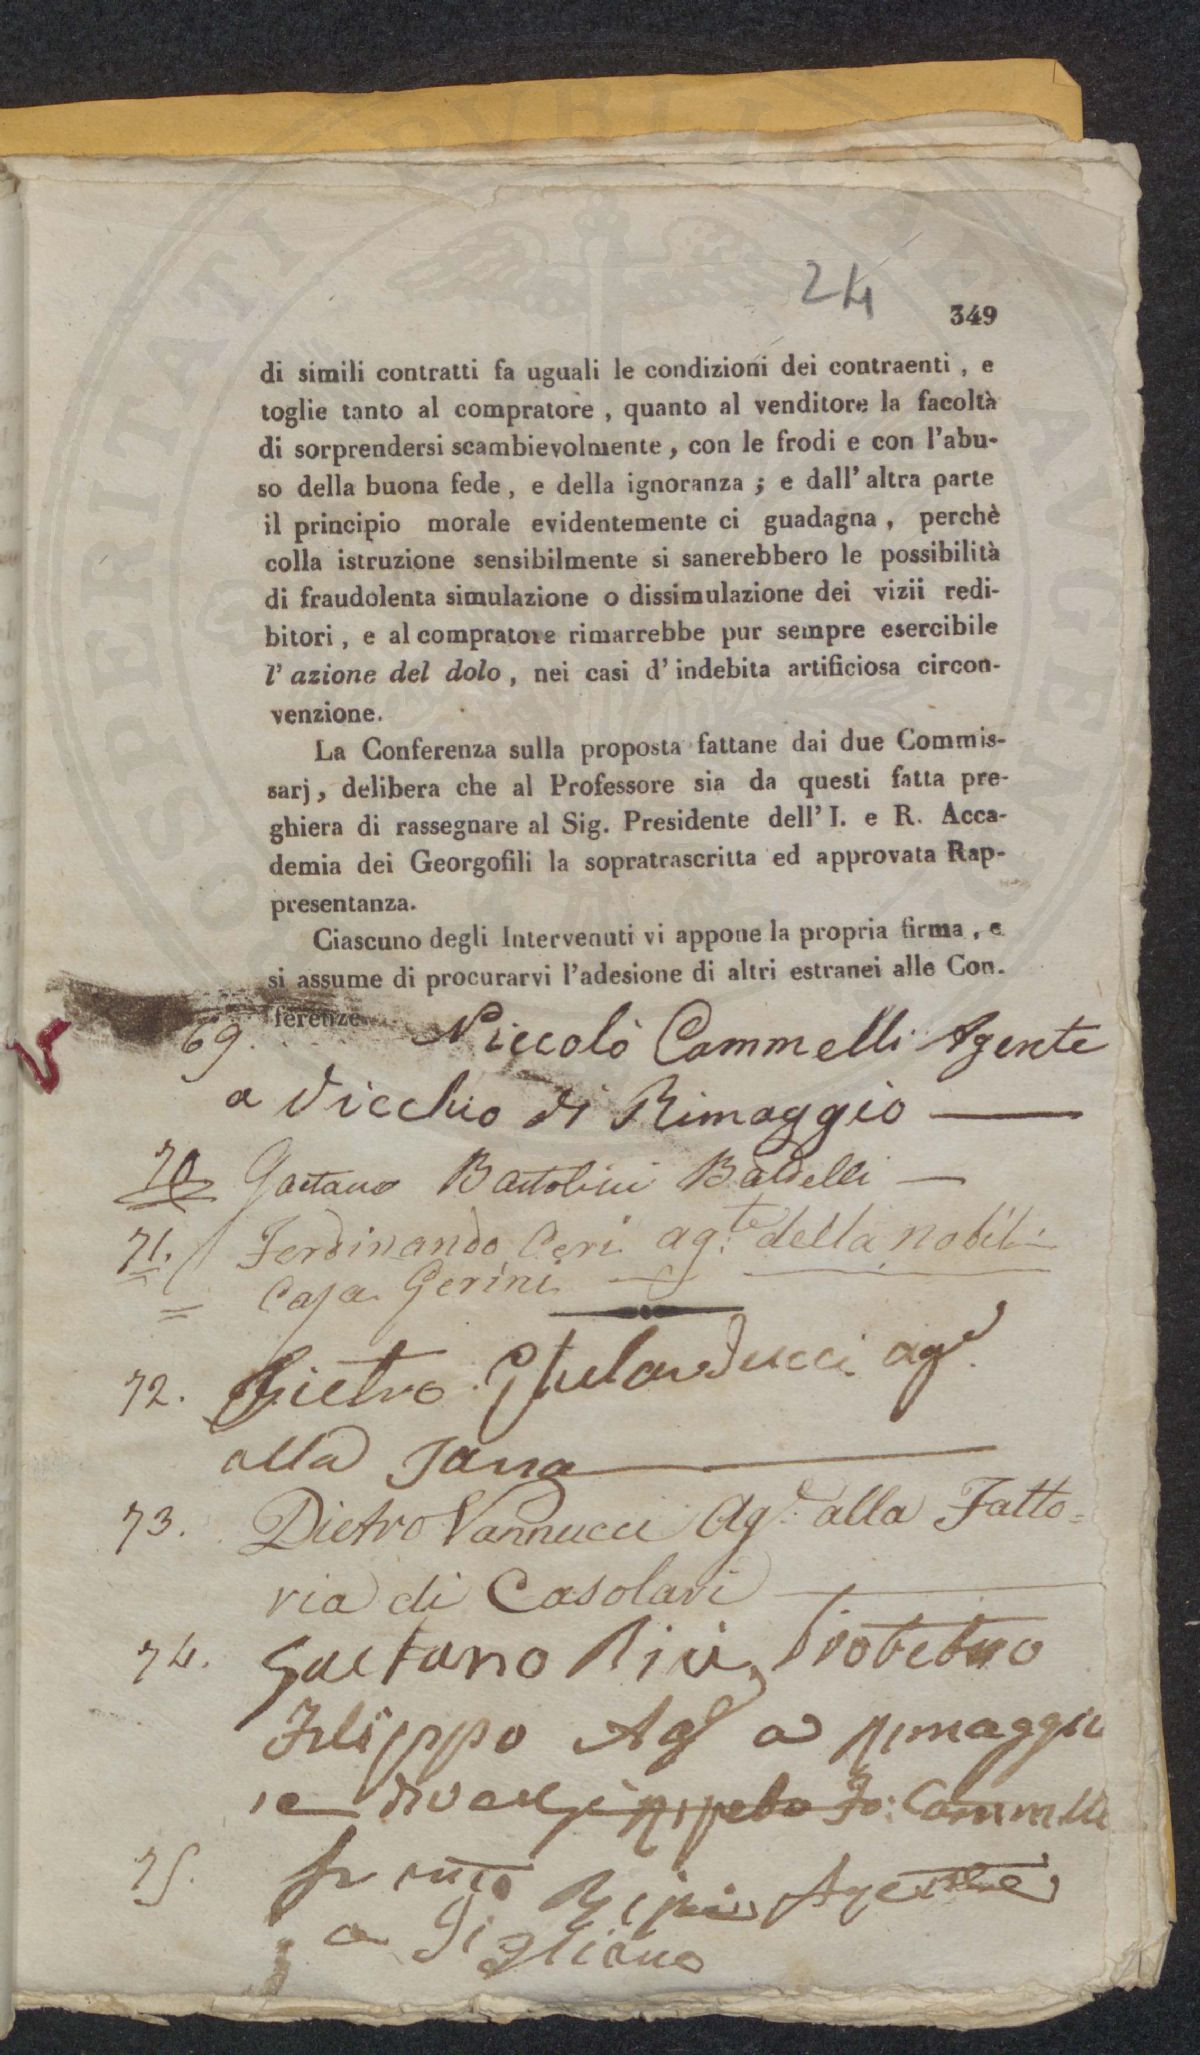 24
349
di simili contratti fa uguali le condizioni dei contraenti , e
toglie tanto al compratore , quanto al venditore la facoltà
di sorprendersi scambievolmente, con le frodi e con l'abu-
so della buona fede, e della ignoranza ; e dall' altra parte
il principio morale evidentemente ci guadagna , perchè
colla istruzione sensibilmente si sanerebbero le possibilità
di fraudolenta simulazione o dissimulazione dei vizii redi-
bitori , e al compratore rimarrebbe pur sempre esercibile
l' azione del dolo , nei casi d' indebita artificiosa circon-
venzione.
La Conferenza sulla proposta fattane dai due Commis-
sarj, delibera che al Professore sia da questi fatta pre-
ghiera di rassegnare al Sig. Presidente dell' I. e R. Acca-
demia dei Georgofili la sopratrascritta ed approvata Rap-
presentanza.
Ciascuno degli Intervenuti vi appone la propria firma , e
si assume di procurarvi l'adesione di altri estranei alle Con-
ferenze.
69. Niccolò Cammelli Agente
a Vicchio di Rimaggio
70 Gaetano Bartolini Baldelli
71. Ferdinando Ceri ag.te della nobil
Casa Gerini
72. Pietro Ghelarducci ag.e
alla Tana
73. Pietro Vannucci Ag.e alla Fatto=
ria di Casolari
74. Gaetano
Filippo Ag.e a
Cammelli
75. Agente
a Gigliano
PERITATI PVBLICAE AVGE